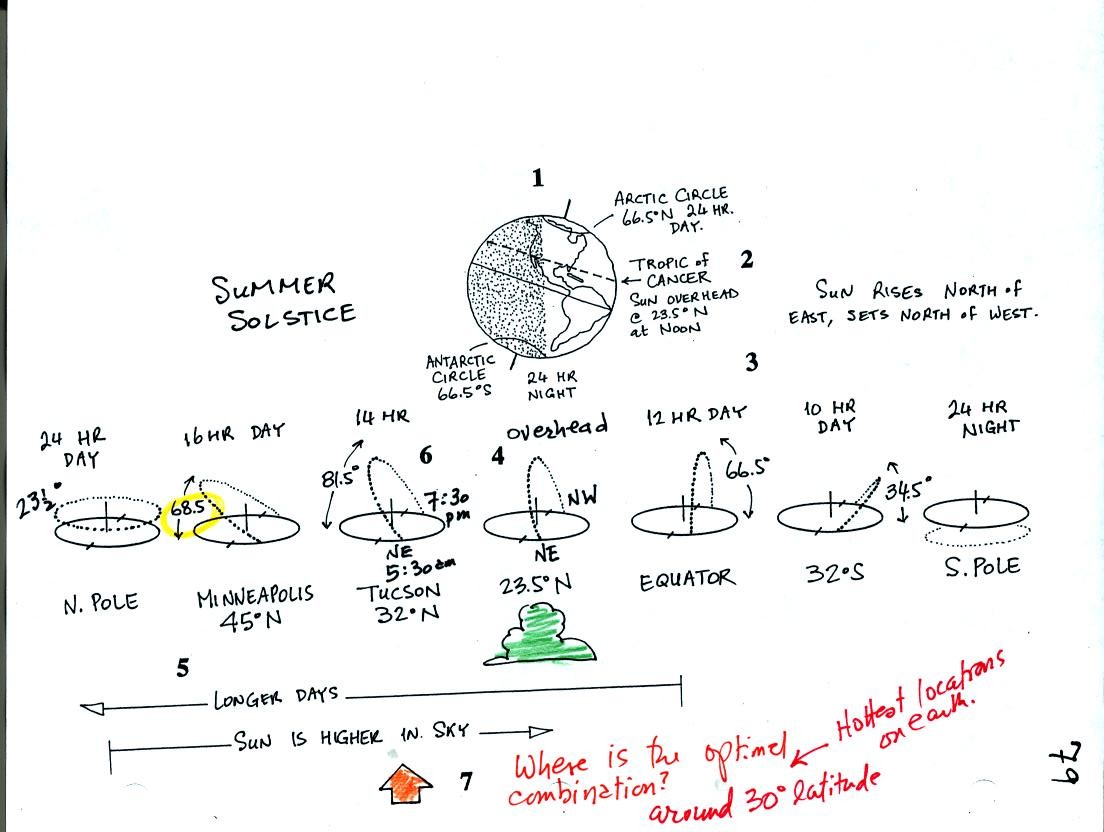 1
ARCTIC CIRCLE
66.5°N 24 HR.
DAY.
2
TROPIC of
CANCER
SUN OVERHEAD
@ 23.5°N
at NOON
SUMMER
SOLSTICE
SUN RISES NORTH of
EAST, SETS NORTH of WEST.
ANTARCTIC
CIRCLE
66.5°S
24 HR
NIGHT
3
24 HR
DAY
23½°
N. POLE
16 HR DAY
68.5°
MINNEAPOLIS
45°N
14 HR
81.5°
6
7:30
pm
NE
5:30am
TUCSON
32°N
overhead
4
NW
NE
23.5°N
12 HR DAY
66.5°
EQUATOR
10 HR
DAY
34.5°
32°S
24 HR
NIGHT
S. POLE
5
LONGER DAYS
SUN IS HIGHER IN SKY
7
Where is the optimal
combination?
around 30° latitude
Hottest locations
on earth.
67